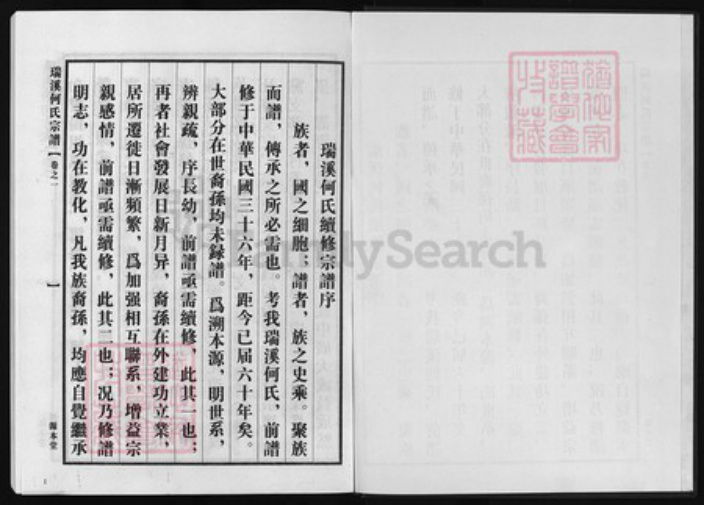 瑞溪何氏續修宗譜序
族者，國之細胞；譜者，族之史乘。聚族
而譜，傳承之所必需也。考我瑞溪何氏，前譜
修于中華民國三十六年，距今已届六十年矣。
大部分在世裔孫均未録譜。爲溯本源，明世系，
辨親疏，序長幼，前譜亟需續修，此其一也；
再者社會發展日新月异，裔孫在外建功立業，
居所遷徙日漸頻繁，爲加强相互聯系，增益宗
親感情，前譜亟需續修，此其二也；况乃修譜
明志，功在教化，凡我族裔孫，均應自覺繼承
瑞溪何氏宗譜【卷之一
】
源本堂
1
FamilySearch
譜學會
收藏